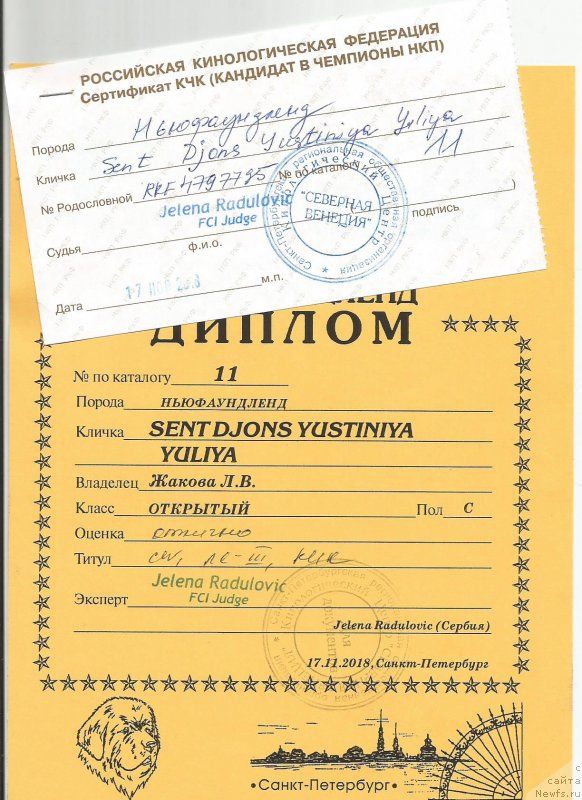 РОССИЙСКАЯ КИНОЛОГИЧЕСКАЯ ФЕДЕРАЦИЯ
Сертификат КЧК (КАНДИДАТ В ЧЕМПИОНЫ НКП)
Порода Ньюфаундленд
Кличка Sent Djons Yustiniya Yuliya
№ Родословной RKF 4797795 № по каталогу 11
Jelena Radulovic
FCI Judge
Судья ф.и.о. подпись
"СЕВЕРНАЯ
ВЕНЕЦИЯ"
Кинологический Центр
Санкт-Петербургская региональная общественная организация
Дата 17 НОЯ 2018 м.п.
ЛЕНД
ДИПЛОМ
№ по каталогу 11
Порода НЬЮФАУНДЛЕНД
Кличка SENT DJONS YUSTINIYA
YULIYA
Владелец Жакова Л.В.
Класс ОТКРЫТЫЙ Пол С
Оценка отлично
Титул CW, ЛС-III, КЧК
Jelena Radulovic
FCI Judge
Эксперт
Jelena Radulovic (Сербия)
17.11.2018, Санкт-Петербург
•Санкт-Петербург•
с
сайта
Newfs.ru